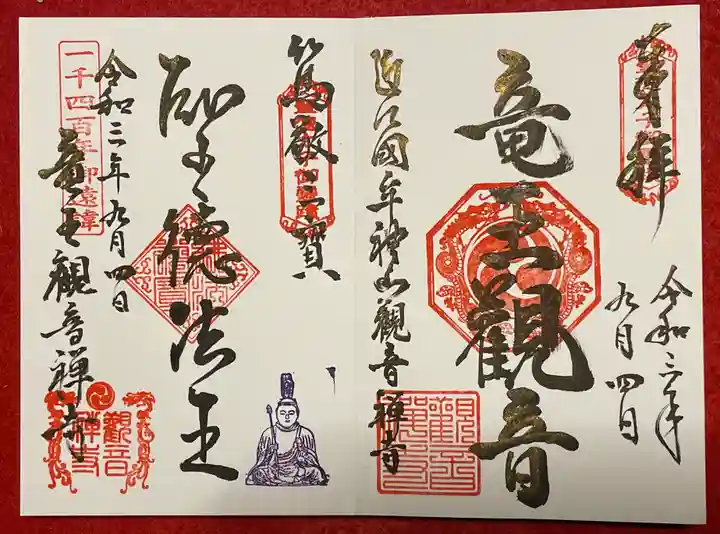 奉拝
令和三年
九月四日
竜王観音
近江國牟神山観音禅寺
篤敬三寳
聖徳法王
令和三年九月四日
竜王観音禅寺
一千四百年御遠諱
観音
禅寺